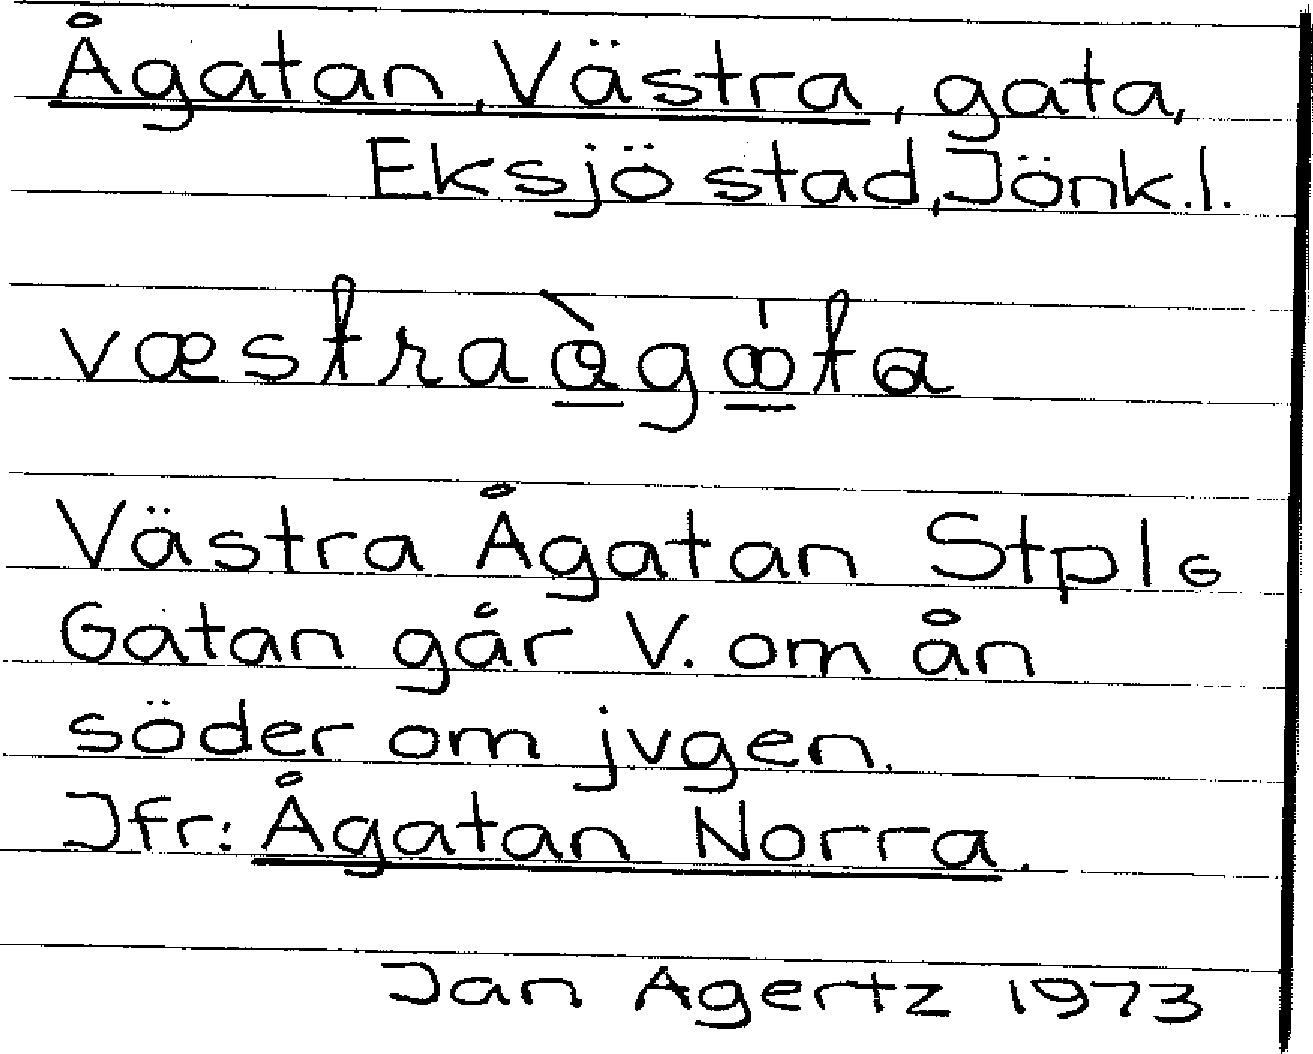 Ågatan, Västra, gata,
Eksjö stad, Jönk.l.
Västra Ågatan Stpl.
Gatan går V. om ån
söder om jvgen.
Jfr: Ågatan Norra.
Jan Agertz 1973